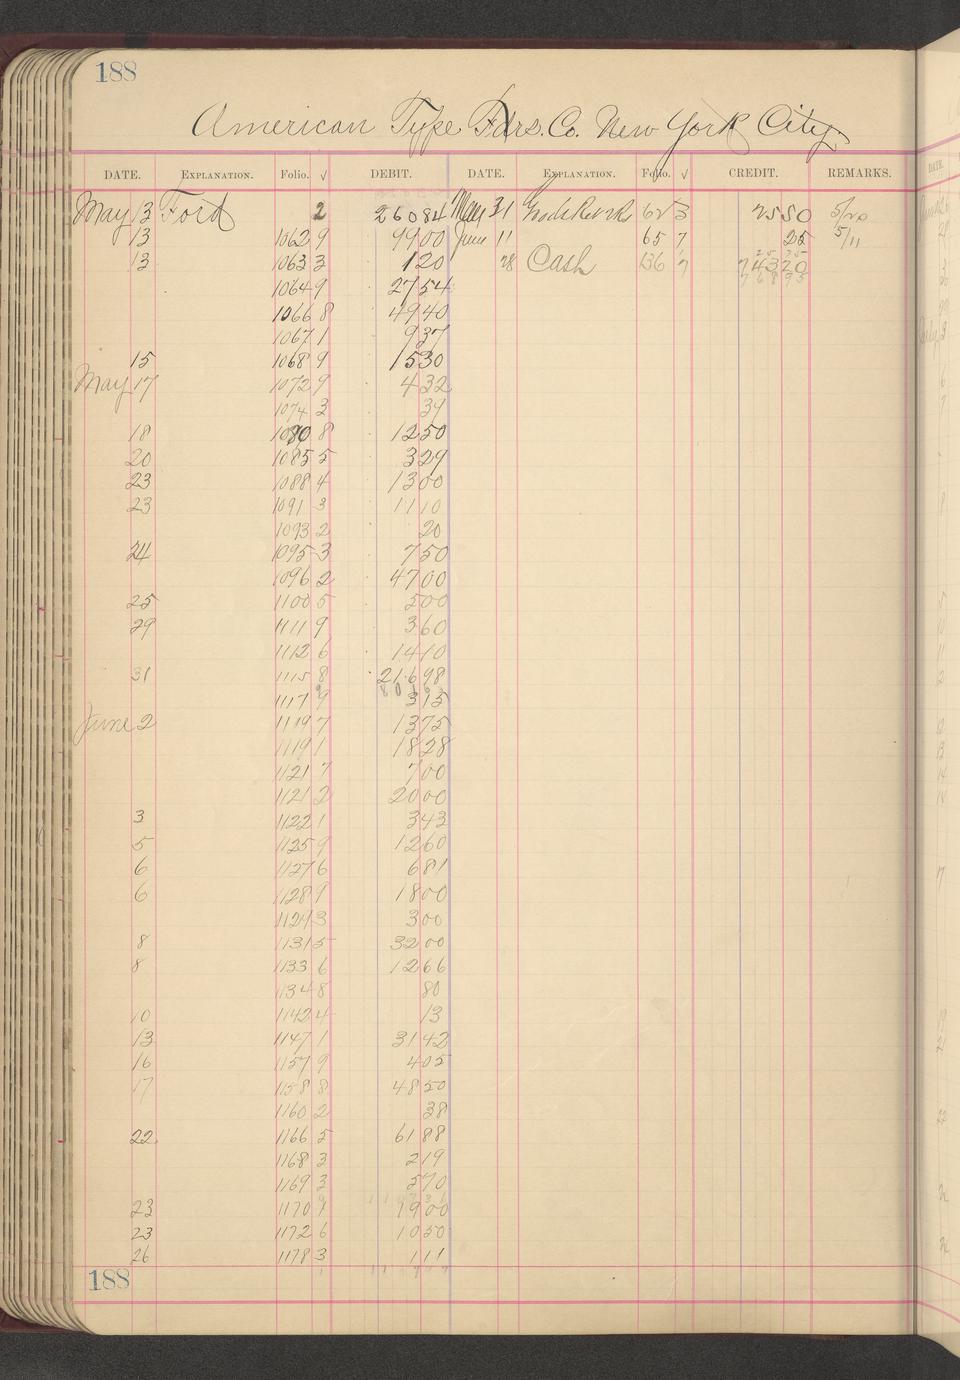 188
American Type Fdrs. Co. New York City.
DATE. EXPLANATION. Folio. √ DEBIT. DATE. EXPLANATION. Folio. √ CREDIT. REMARKS.
May 13 2 26084 May 31 3 2580 5/20
13 1062 9 9900 June 11 65 7 25 5/11
13 1063 3 120 28 Cash 136 7 74320
1064 9 2754 76893
1066 8 4940
1067 1 937
15 1068 9 1530
May 17 1072 9 432
1074 3 39
18 1080 8 1250
20 1085 5 329
23 1088 4 1300
23 1091 3 1110
1093 2 20
24 1095 3 750
1096 2 4700
25 1100 5 500
29 1111 9 360
1112 6 1410
31 1115 8 21698
1117 9 315
June 2 1119 7 1375
1119 1 1828
1121 7 700
1121 2 2000
3 1122 1 343
5 1125 9 1260
6 1127 6 681
6 1128 9 1800
3 300
8 1131 5 3200
8 1133 6 1266
1134 8 80
10 1142 4 13
13 1147 1 3142
16 1157 9 405
17 1158 8 4850
1160 2 38
22 1166 5 6188
1168 3 219
1169 3 570
23 1170 1 1900
23 1172 6 1050
26 1178 3 111
188